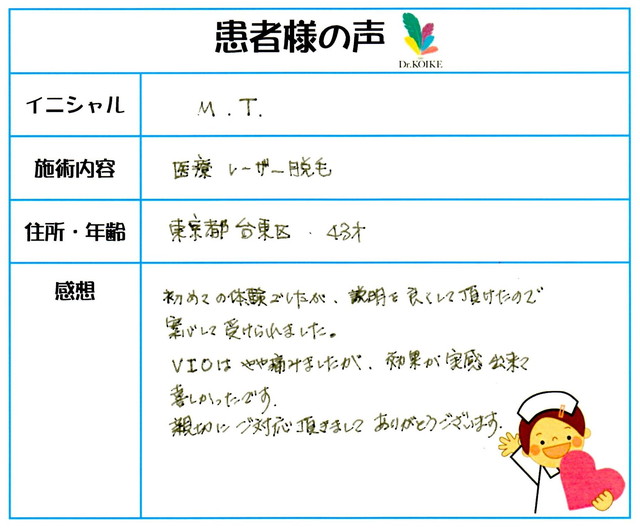 患者様の声
Dr.KOIKE
イニシャル
M.T.
施術内容
医療 レーザー脱毛
住所・年齢
東京都台東区 . 43才
感想
初めての体験でしたが、説明も良くして頂けたので
安心して受けられました。
VIOは やや痛みましたが、効果が実感出来て
喜しかったです.
親切にご対応頂きまして ありがとうございます.